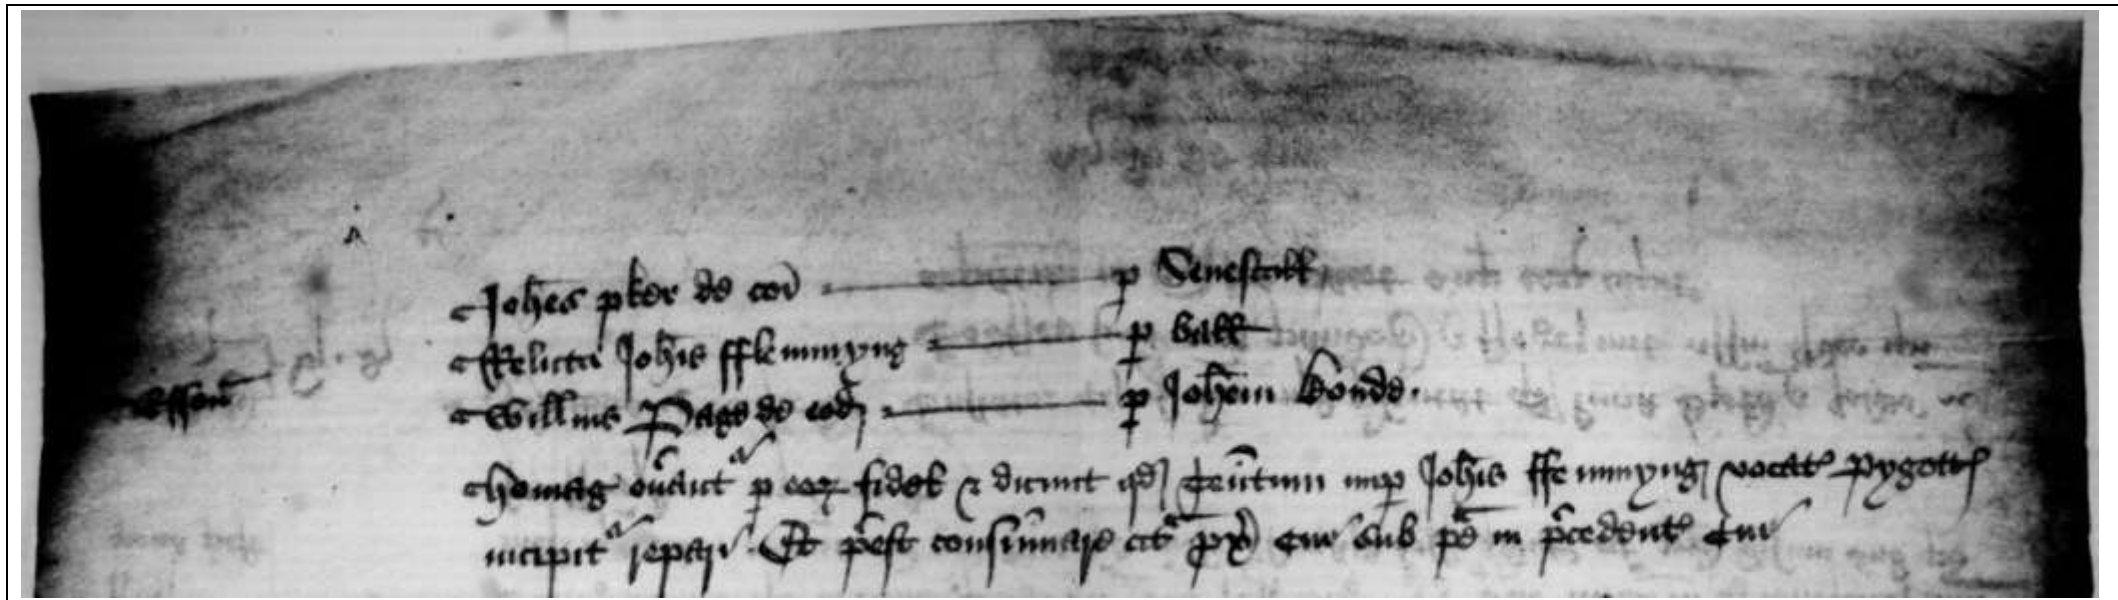 Joh̄es pker de eod̄ p Senescall
Relicta Joh̄is fflemmyng p ball
Esson̄
Will̄ms Page de eod̄ p Joh̄em Bonde.
homag on̄ant p eoꝝ fidel & dicunt qd ten̄tum nup Joh̄is ffemmyng vocat pygott
incipit repari. Et p̄est consum̄are cit̄ px̄ cur sub pe᷑ in p̄cedent cur